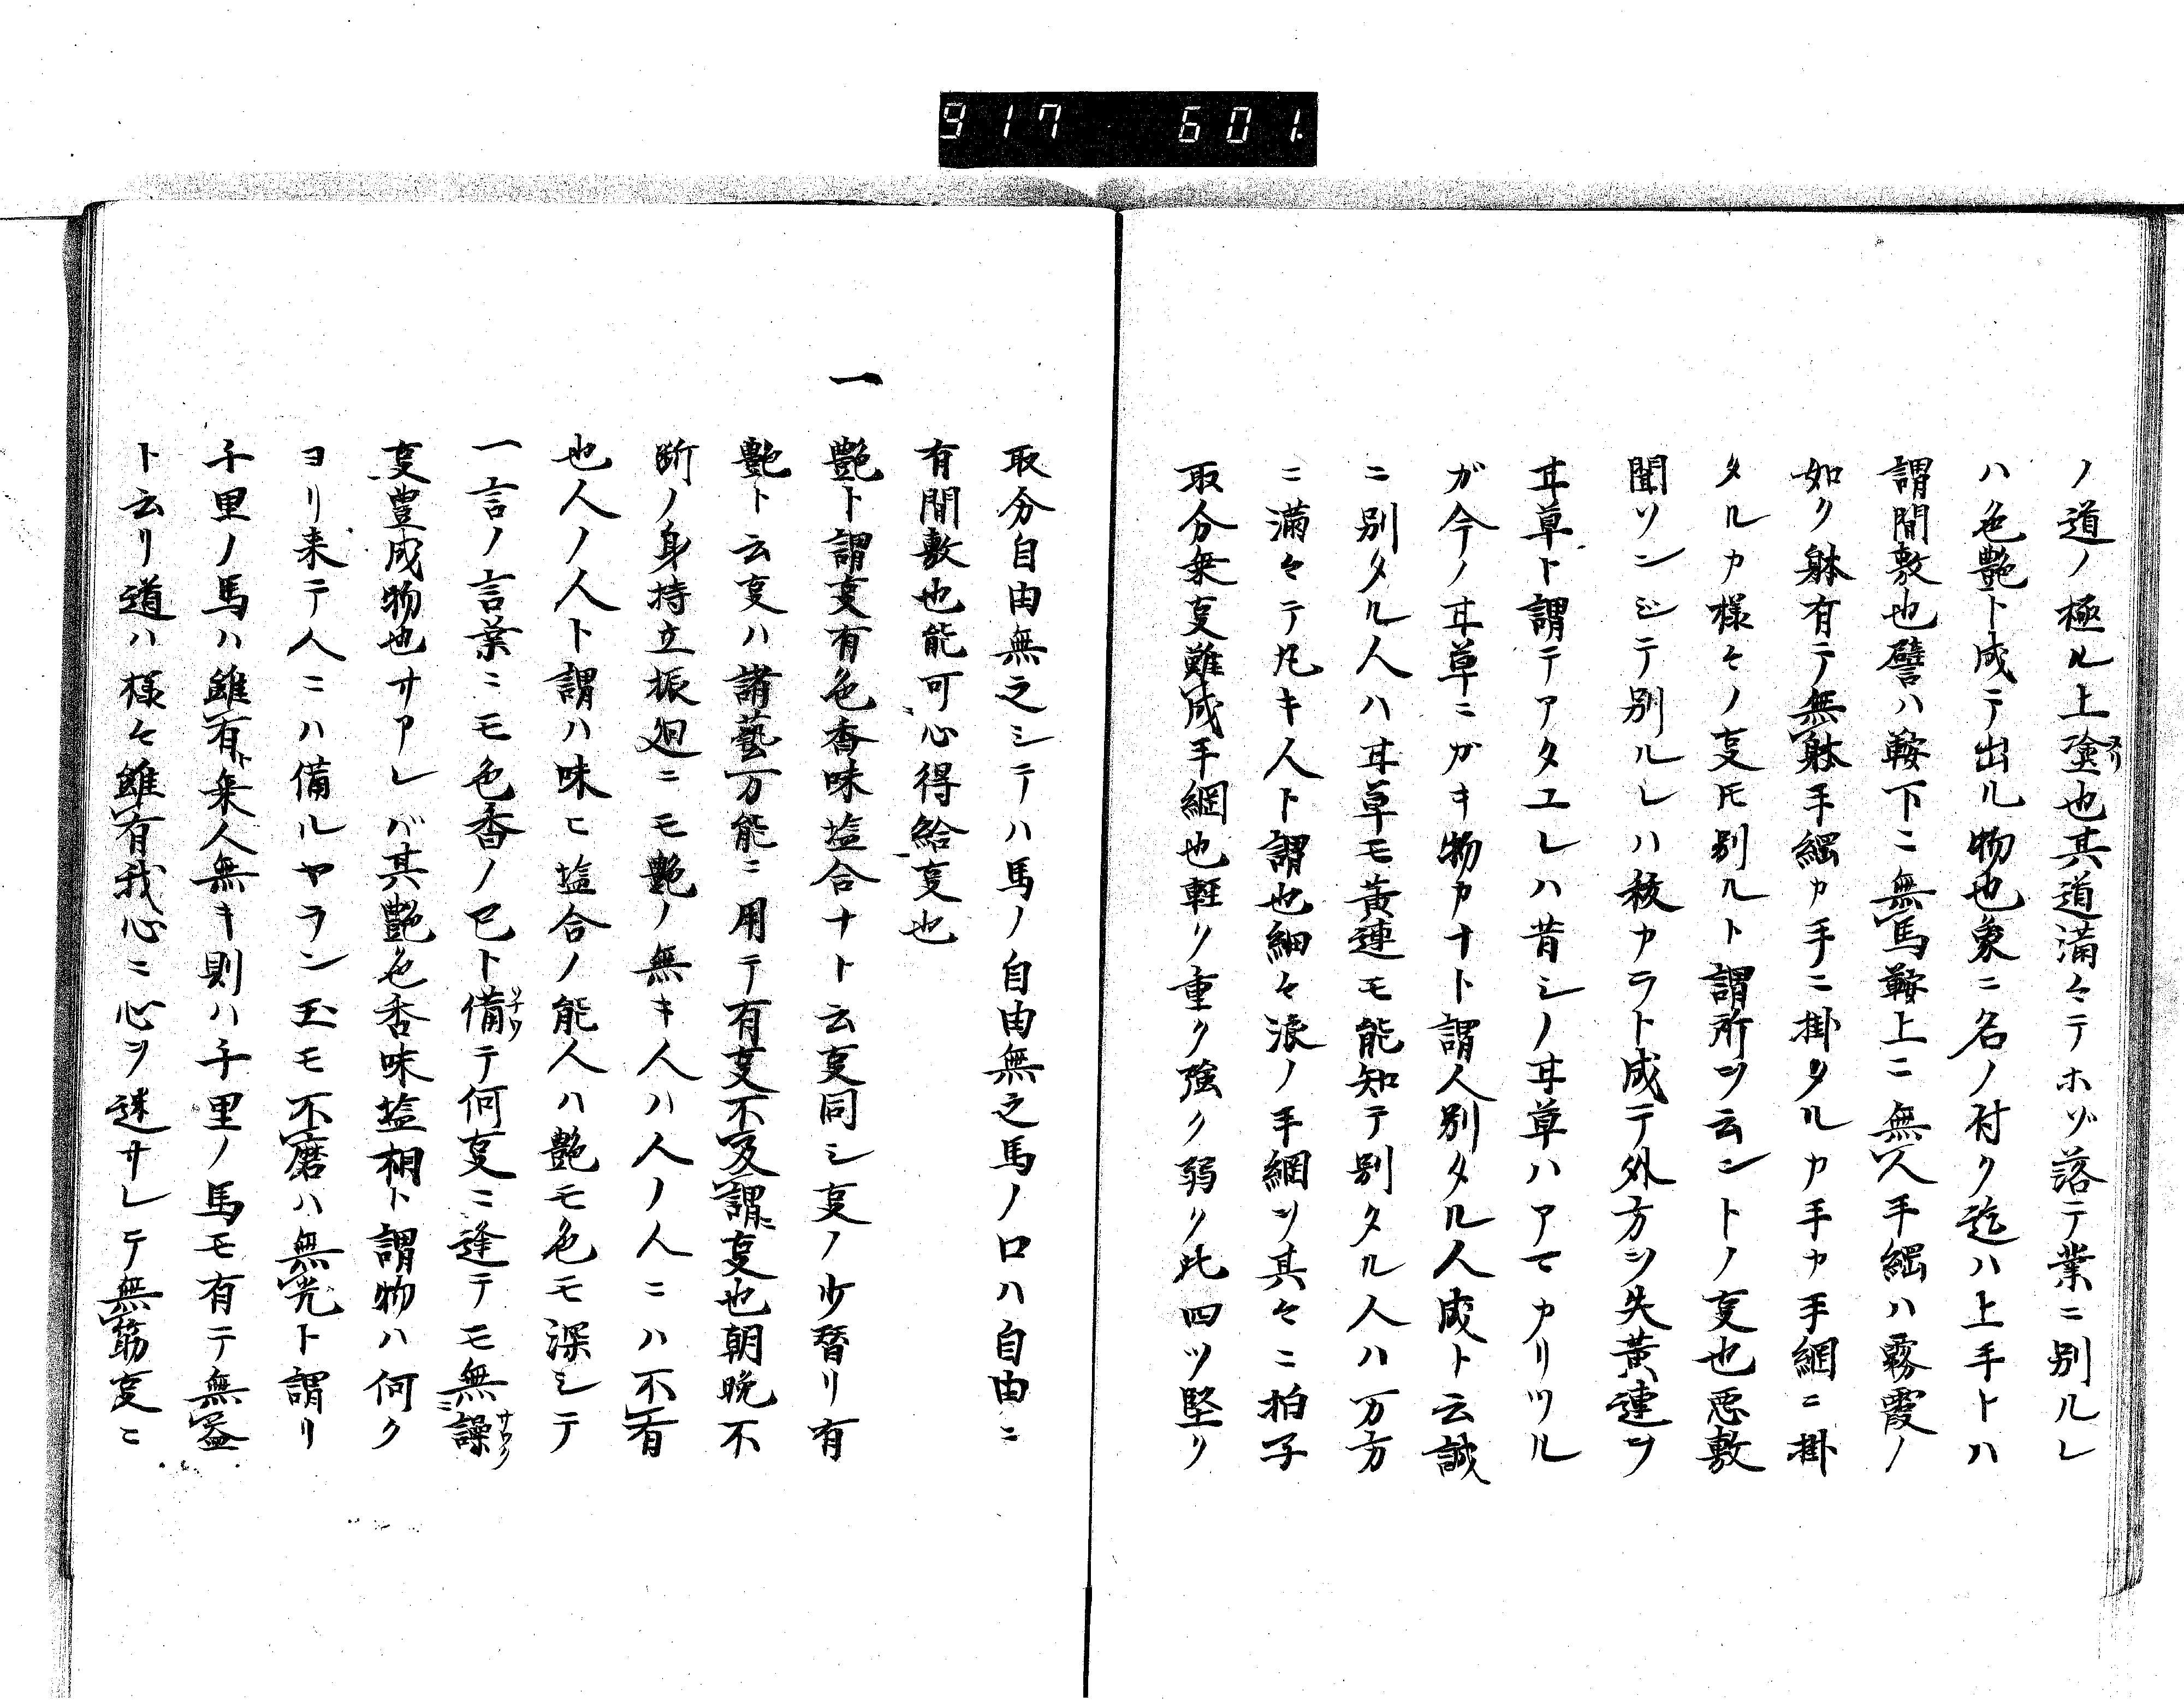 917 601.
ノ道ノ極ル上塗也其道満々テホゾ落テ業ニ別ルレ
ハ色艶ト成テ出ル物也象ニ名ノ付ク迄ハ上手トハ
謂間敷也譬ハ鞍下ニ無馬鞍上ニ無人手綱ハ霧霞ノ
如ク躰有テ無躰手綱カ手ニ掛タルカ手カ手綱ニ掛
タルカ様々ノ㕝𪜈別ルト謂所ヲ云ントノ㕝也悪敷
聞ソンジテ別ルレハ核カラト成テ外方ヲ失黄連ヲ
甘草ト謂テアタエレハ昔シノ甘草ハアマカリツル
ガ今ノ甘草ニガキ物カナト謂人別タル人成ト云誠
ニ別タル人ハ甘草モ黄連モ能知テ別タル人ハ万方
ニ満々テ丸キ人ト謂也細々浪ノ手綱ヲ其々ニ拍子
取分乗㕝難成手綱也軽ク重ク強ク弱ク此四ツ堅ク
取分自由無之シテハ馬ノ自由無之馬ノ口ハ自由ニ
有間敷也能可心得給㕝也
一 艶ト謂㕝有色香味塩合ナト云㕝同シ㕝ノ少替リ有
艶ト云㕝ハ諸藝万能ニ用テ有㕝不及謂ニ㕝也朝晩不
断ノ身持立振廻ニモ艶ノ無キ人ハ人ノ人ニハ不有
也人ノ人ト謂ハ味ヒ塩合ノ能人ハ艶モ色モ深シテ
一言ノ言葉ニモ色香ノ已ト備テ何㕝ニ逢テモ無譟
㕝豊成物也サアレバ其艶色香味塩相ト謂物ハ何ク
ヨリ来テ人ニハ備ルヤラン玉モ不磨ハ無光ト謂リ
千里ノ馬ハ雖有ト乗人無キ則ハ千里ノ馬モ有テ無益
ト云リ道ハ様々雖有我心ニ心ヲ迷サレテ無筋㕝ニ